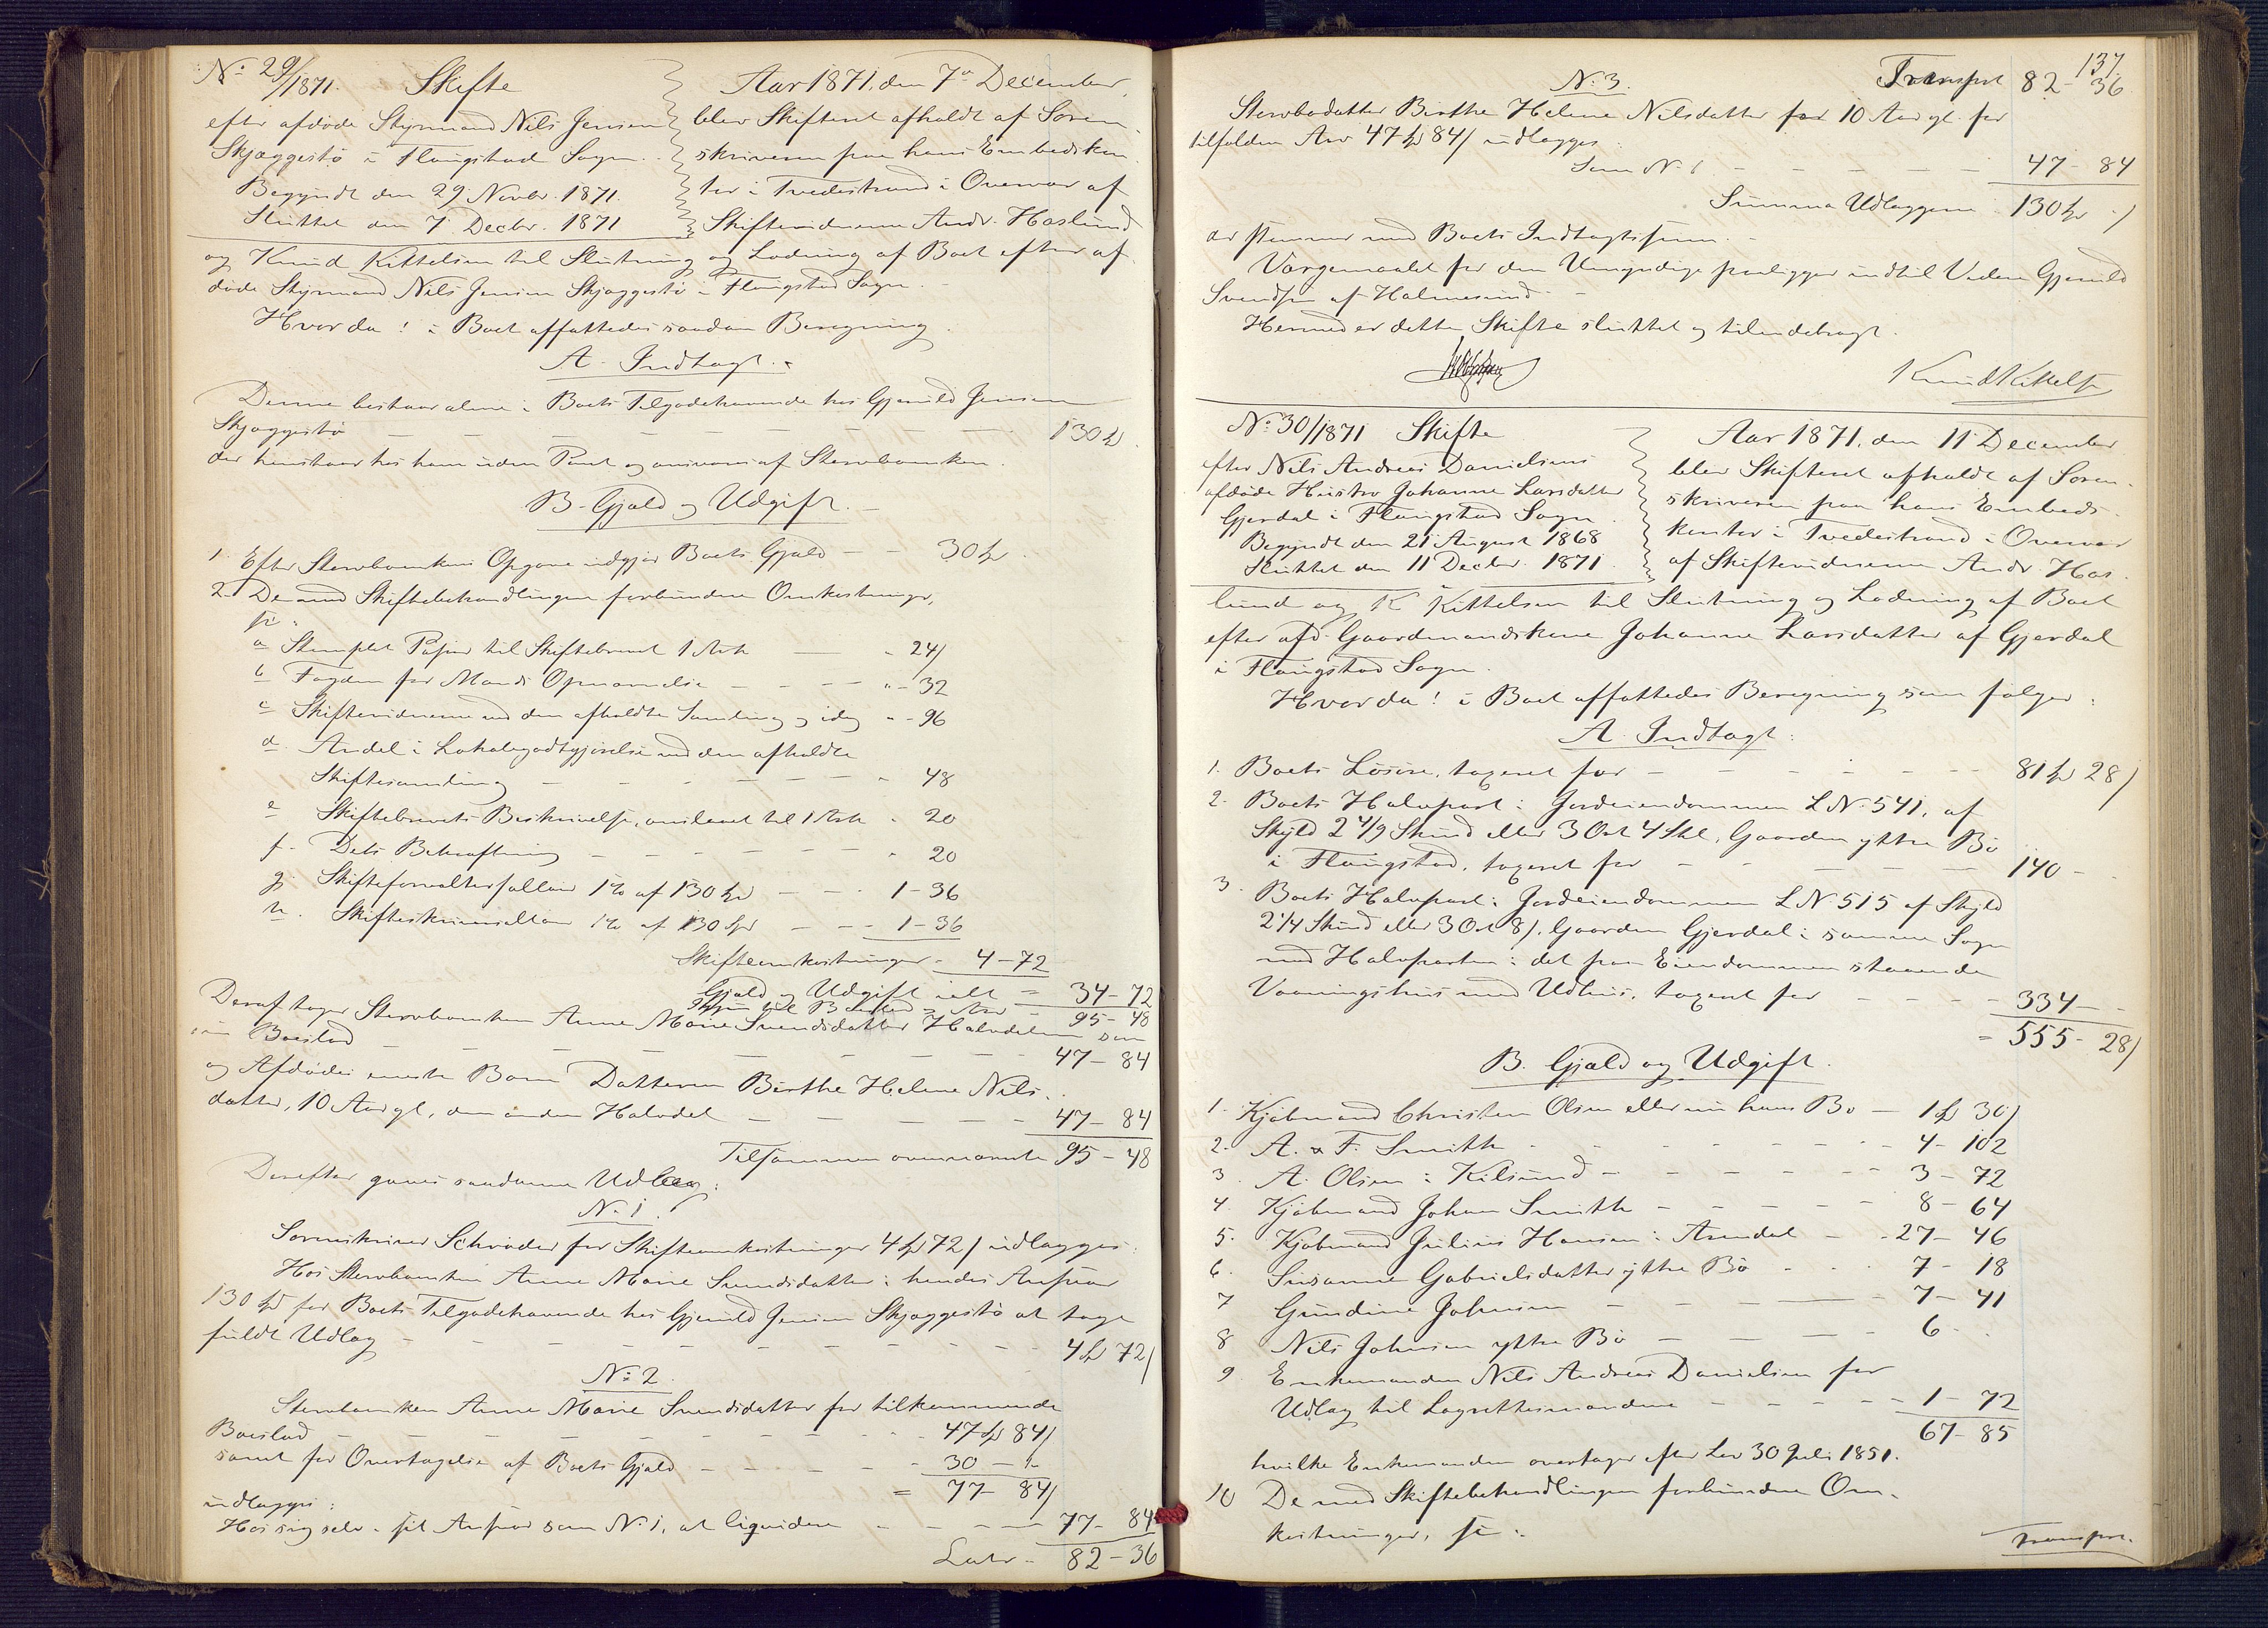 No 29/1871. Skifte
efter afdøde Styrmand Nils Jensen
Skjæggestø i Flangstad Sogn.
Begyndt den 29 Novbr. 1871.
Sluttet den 7 Decbr. 1871
Aar 1871, den 7de December,
blev Skifteret afholdt af Soren-
skriveren paa hans Embedskon-
tor i Tvedestrand i Overvær af
Skiftevidnerne Andr. Haslund
og Knud Kittelsen til Slutning og Lodning af Boet efter af-
døde Styrmand Nils Jensen Skjæggestø i Flangstad Sogn.
Hvorda! i Boet affattedes saadan Beregning
A. Indtægt.
Denne bestaar alene i Boets Tilgodehavende hos Gjeruld Jensen
Skjæggestø 130 Spd
der henstaar hos ham uden Pant og ansvares af Stervboenken.
B. Gjæld og Udgift.
1. Efter Stervboenkens Opgave udgjør Boets Gjæld - - 30 Spd
2. De med Skiftebehandlingen forbundne Omkostninger,
som:
a Stemplet Papir til Skiftebrevet 1 Ark - 24 /
b Fogden for Mænds Opnævnelse - - - " - 32
c Skiftevidnerne ved den afholdte Samling og idag " - 96
d. Andel i Lokalegodtgjørelse ved den afholdte
Skiftesamling 48
e Skiftebrevets Beskrivelse, anslaaet til 1 Ark 20
f. Dets Bekræftning 20
g. Skifteforvaltersallair 1 % af 130 Spd - - 1 - 36
h. Skifteskriversallair 1 % af 130 Spd - - - 1 - 36
Skifteomkostninger - 4 - 72
Gjæld og Udgift ialt = 34 - 72
Igjen til Boeslod og Arv - 95 - 48
Deraf tager Stervboenken Anne Marie Svendsdatter Halvdelen som
sin Boeslod 47 - 84
og Afdødes eneste Barn Datteren Birthe Helene Nils-
datter, 10 Aar gl., den anden Halvdel 47 - 84
Tilsammen ovennævnte 95 - 48
Derefter gaves saadanne Udlæg:
No 1.
Sorenskriver Schrøder for Skifteomkostninger 4 Spd 72 / udlægges:
Hos Stervboenken Anne Marie Svendsdatter i hendes Ansvar
130 Spd for Boets Tilgodehavende hos Gjeruld Jensen Skjæggestø at tage
fuldt Udlæg 4 Spd 72 /
No 2.
Stervboenken Anne Marie Svendsdatter for tilkommende
Boeslod 47 Spd 84 /
samt for Overtagelse af Boets Gjæld 30 - " -
= 77 - 84 /
udlægges:
Hos sig selv i sit Ansvar som No 1, at liquidere 77 - 84
Latr. - 82 - 36
137
Transport 82 - 36
No 3.
Stervbodatter Birthe Helene Nilsdatter for 10 Aar gl. for
tilfalden Arv 47 Spd 84 / udlægges
Som No 1 47 - 84
Summa Udlæggene 130 Spd " /
der stemmer med Boets Indtægtssum.
Værgemaalet for den Umyndige paaligger indtil Videre Gjeruld
Svendsen af Holmesund.
Hermed er dette Skifte sluttet og tilendebragt.
Knud Kittelsen
No 30/1871 Skifte
efter Nils Andreas Danielsens
afdøde Hustro Johanne Larsdatter
Gjerdal i Flangstad Sogn
Begyndt den 21 August 1868
Sluttet den 11 Decbr. 1871.
Aar 1871, den 11 December
blev Skifteret afholdt af Soren-
skriveren paa hans Embeds-
kontor i Tvedestrand i Overvær
af Skiftevidnerne Andr. Has-
lund og K Kittelsen til Slutning og Lodning af Boet
efter afd. Gaardmandskone Johanne Larsdatter af Gjerdal
i Flangstad Sogn.
Hvorda! i Boet affattedes Beregning som følger:
A. Indtægt:
1. Boets Løsøre, taxeret for - 81 Spd 28 /
2. Boets Halvpart i Jordeiendommen L.No. 541, af
Skyld 2 4/9 Skind eller 3 Ort 4 Skl, Gaarden yttre Bø
i Flangstad, taxeret for 140 -
3. Boets Halvpart i Jordeiendommen L No 515 af Skyld
2 1/4 Skind eller 3 Ort 8 /. Gaarden Gjerdal i samme Sogn
med Halvparten i det paa Eiendommen staaende
Vaaningshus med Udhus, taxeret for - - - 334 -
= 555 - 28 /
B. Gjæld og Udgift.
1. Kjøbmand Christen Olsen eller nu hans Bo - 1 Spd 30 /
2. A. & F. Smith 4 - 102
3. A. Olsen i Kilsund 3 - 72
4. Kjøbmand Johan Smith 8 - 64
5. Kjøbmand Julius Hansen i Arendal - 27 - 46
6. Susanne Gabrielsdatter yttre Bø 7 - 18
7 Gundine Johnsen 7 - 41
8 Nils Johnsen yttre Bø 6 -
9 Enkemanden Nils Andreas Danielsen for
Udlæg til Lagrettesmændene 1 - 72
67 - 85
hvilke Enkemanden overtager efter Lov 30 Juli 1851.
10 De med Skiftebehandlingen forbundne Om-
kostninger, som:
Transport.